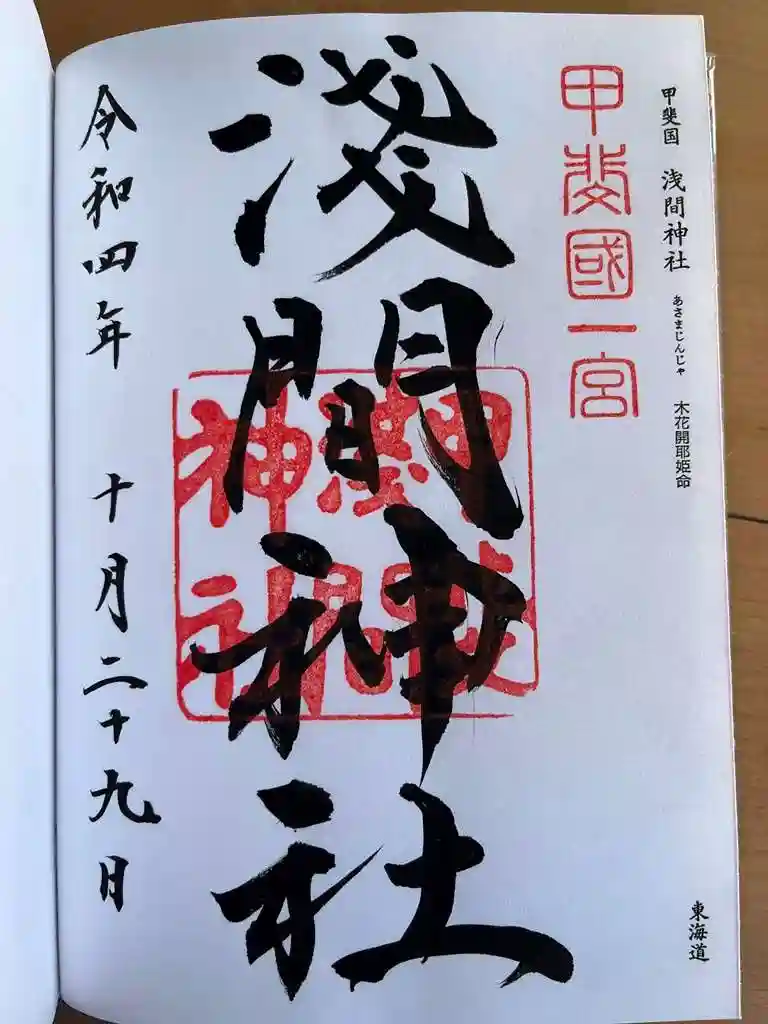 甲斐国 浅間神社 あさまじんじゃ 木花開耶姫命
東海道
甲斐國一宮
淺間神社
令和四年 十月二十九日